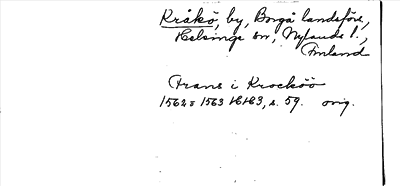 Kråkö, by, Borgå landsförs.,
Helsinge sn, Nylands l.,
Finland
Frans i Krocköö
1562 s 1563 H 163, s. 59. orig.